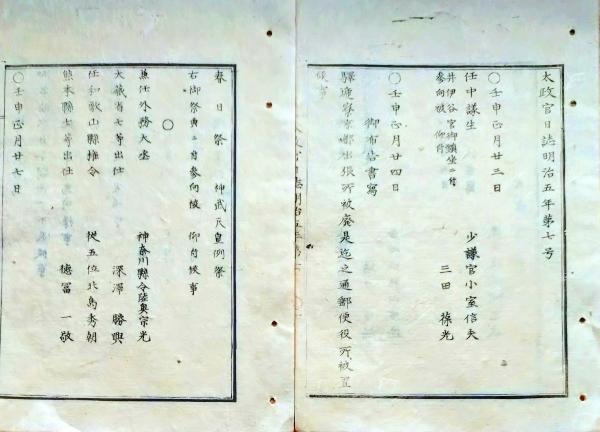 太政官日誌明治五年第七号
〇壬申正月廿三日
任中議生　少議官小室信夫
井伊谷宮御鎮坐ニ付
参向被　仰付　三田葆光
〇壬申正月廿四日
御布告書寫
驛逓寮京都出張所被廃是迄之通郵便役所被置
候事
春日祭　神武天皇例祭
右御祭典ニ付参向被　仰付候事
〇
兼任外務大丞　神奈川縣令陸奥宗光
大蔵省七等出仕　深澤勝興
任和歌山縣権令　従五位北島秀朝
熊本縣七等出仕　徳冨一敬
〇壬申正月廿七日